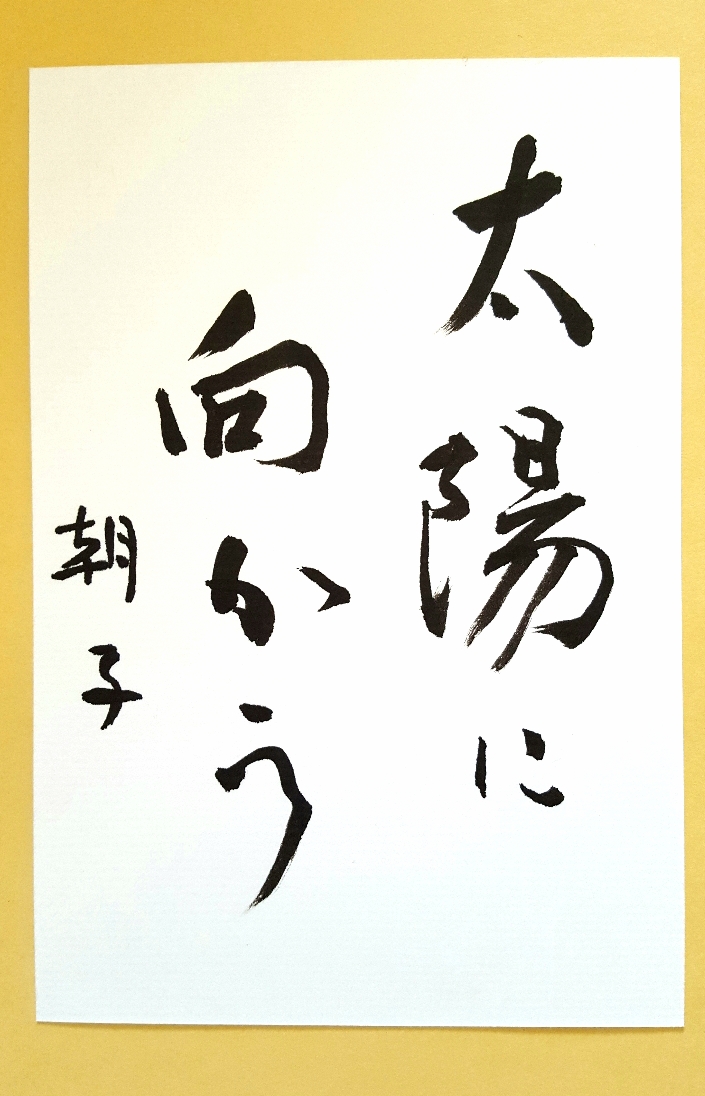 太陽に
向かう
朝子